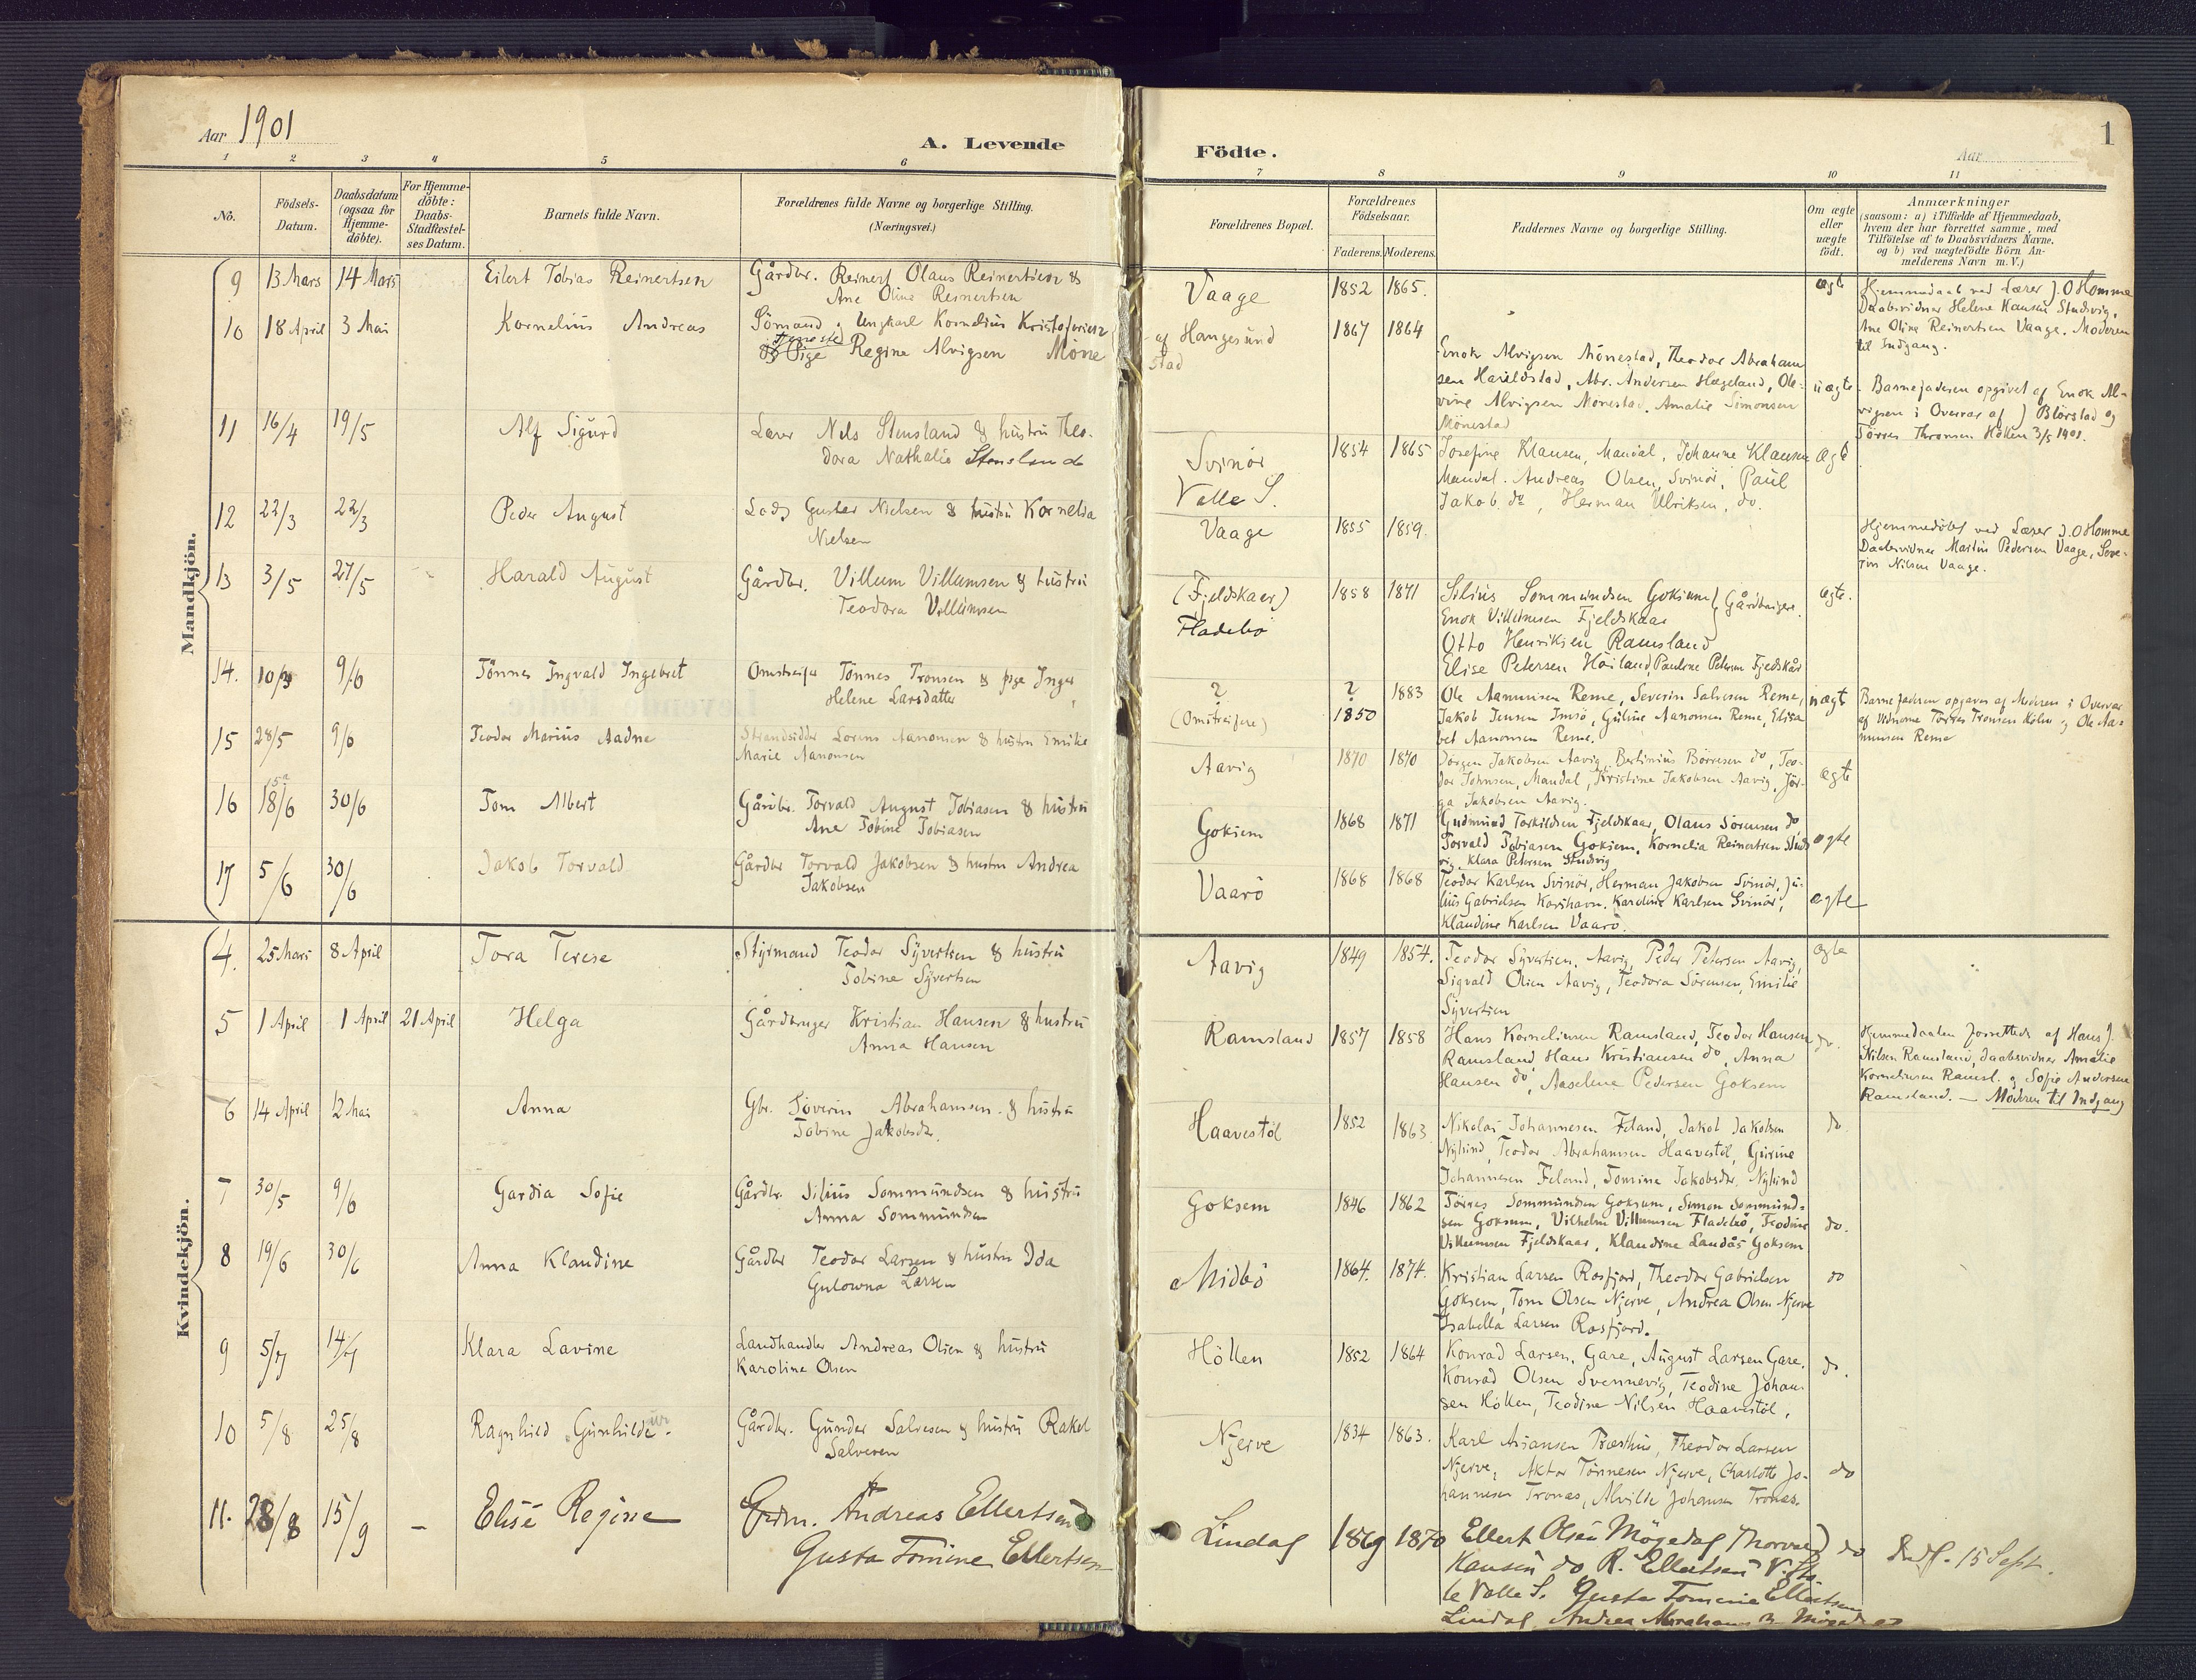 Aar 1901
A. Levende
Födte.
Aar
1
1 2 3 4 5 6 7 8 9 10 11
No.
Födsels-
Datum.
Daabsdatum
(ogsaa for
Hjemme-
döbte).
For Hjemme-
döbte:
Daabs-
Stadfæstel-
ses Datum.
Barnets fulde Navn.
Forældrenes fulde Navne og borgerlige Stilling.
(Næringsvei.)
Forældrenes Bopæl.
Forældrenes
Födselsaar.
Faderens. Moderens.
Faddernes Navne og borgerlige Stilling.
Om ægte
eller
uægte
födt.
Anmærkninger
(saasom: a) i Tilfælde af Hjemmedaab,
hvem der har forrettet samme, med
Tilföielse af to Daabsvidners Navne,
og b) ved uægtefödte Börn An-
melderens Navn m. V.)
Mandkjön.
9 13 Mars 14 Mars Eilert Tobias Reinertsen Gårdbr. Reinert Olaus Reinertsen &
Ane Oline Reinertsen
Vaage 1852 1865. ægte
Hjemmedaab ved Lærer J. O Homme
Daabsvidner Helene Hansen Studvig,
Ane Oline Reinertsen Vaage. Moderen
til Indgang.
10 18 April 3 Mai Kornelius Andreas Sömand og Ungkarl Kornelius Kristofersen
Tjeneste
Pige Regine Alvigsen Möne
af Haugesund
stad
1867 1864
Enok Alvigsen Mönestad, Theodor Abraham
sen Harildstad, Abr. Andersen Hægeland, Ole-
vine Alvigsen Mönestad, Amalie Simonsen
Mönestad
uægte
Barnefaderen opgivet af Enok Al-
vigsen i Overvær af J Blörstad og
Törres Thronsen Hölken 3/5 1901.
11 16/4 19/5 Alf Sigurd Lærer Nels Stensland & hustru Theo-
dora Nathalie Stensland
Svinör
Valle S.
1854 1865 Josefine Klausen, Mandal, Johanne Klausen
Mandal. Andreas Olsen, Svinör, Paul
Jakob. do, Herman Ulriksen, do.
ægte
12 22/3 22/3 Peder August Lods Gustav Nielsen & hustru Kornelia
Nielsen
Vaage 1855 1859.
Hjemmedöbt ved Lærer J. O Homme
Daabsvidner Martin Pedersen Vaage, Seve-
rin Nilsen Vaage.
13 3/5 27/5 - Harald August Gårdbr. Villum Villumsen & hustru
Teodora Villumsen
(Fjeldskaar)
Fladebö
1858 1871 Silius Sommundsen Goksem } Gårdbrugere
Enok Villumsen Fjeldskaar
Otto Henriksen Ramsland
Elise Petersen Höiland, Pauline Petersen Fjeldskår
ægte.
14. 10/3 9/6 Tönnes Ingvald Ingebret Omstreifer Tönnes Tronsen & pige Inger
Helene Larsdatter
?
(Omstreifere)
? 1883
1850
Ole Aanunsen Reme, Severin Salvesen Reme,
Jakob Jensen Imsö, Guline Aanonsen Reme, Elisa
bet Aanonsen Reme.
uægt
Barnefaderen opgaves af Moderen i Overvær
af Vidnerne Törres Tronsen Hölln og Ole Aa-
nunsen Reme
15 28/5 9/6 Teodor Marius Aadne Strandsidder Lorens Aanonsen & hustru Emilie
Marie Aanonsen
Aavig 1870 1870 Jörgen Jakobsen Aavig, Bertinius Börresen do, Teo-
dor Johnsen, Mandal, Kristine Jakobsen Aavig, Jör-
ga Jakobsen Aavig.
ægte
16 18/6 30/6 Tom Albert Gårdbr. Torvald August Tobiasen & hustru
Ane Tobine Tobiasen
Goksem 1868 1871 Gudmund Torkildsen Fjeldskaar, Olaus Sörensen do,
Torvald Tobiasen Goksem, Kornelia Reinertsen Stud
vig. Klara Petersen Studvig
ægte
17 5/6 30/6 Jakob Torvald Gårdbr Torvald Jakobsen & hustru Andrea
Jakobsen
Vaarö 1868 1868 Teodor Karlsen Svinör, Herman Jakobsen Svinör, Ju-
lius Gabrielsen Korshavn. Karoline Karlsen Svinör,
Klaudine Karlsen Vaarö.
ægte
Kvindekjön.
4. 25 Mars 8 April Tora Terese Styrmand Teodor Syvertsen & hustru
Tobine Syvertsen
Aavig 1849 1854. Teodor Syvertsen, Aavig, Peder Petersen Aavig,
Sigvald Olsen Aavig, Teodora Sörensen, Emilie
Syvertsen
ægte
5 1 April 1 April 21 April Helga Gårdbruger Kristian Hansen & hustru
Anna Hansen
Ramsland 1857 1858 Hans Korneliusen Ramsland, Teodor Hansen
Ramsland, Hans Kristiansen do, Anna
Hansen do, Aaselene Pedersen Goksem
do.
Hjemmedaaben forrettedes af Hans J.
Nilsen Ramsland, Daabsvidner Amalie
Korneliusen Ramsl. og Sofie Andersen
Ramsland. — Moderen til Indgang
6 14 April 12 Mai - Anna Gbr. Söverin Abrahamsen & hustru
Tobine Jakobsdr.
Haavestöl 1852 1863. Nikolai Johannesen Feland, Jakob Jakobsen
Nylund, Teodor Abrahamsen Haavestöl, Gurine
Johannesen Feland, Tomine Jakobsdr. Nylund
do.
7 30/5 9/6 Gardia Sofie Gårdbr. Silius Sommundsen & hustru
Anna Sommundsen
Goksem 1846 1862 Törres Sommundsen Goksem, Simon Sommund-
sen Goksem, Vilhelm Villumsen Fladebö, Teodine
Villumsen Fjeldskaar, Klaudine Landås Goksem
do.
8 19/6 30/6 Anna Klaudine Gårdbr Teodor Larsen & hustru Ida
Gulowna Larsen
Midbö 1864. 1874. Kristian Larsen Rosfjord, Theodor Gabrielsen
Goksem, Tom Olsen Njerve, Andrea Olsen Njerve
Isabella Larsen Rosfjord.
do
9 5/7 14/7 Klara Lavine Landhandler Andreas Olsen & hustru
Karoline Olsen
Höllen 1852 1864 Konrad Larsen, Gare, August Larsen Gare,
Konrad Olsen Svennevig, Teodine Johan-
sen Höllen, Teodine Nilsen Haavestöl,
do.
10 5/8 25/8 Ragnhild Gunhilde. Gårdbr. Gunder Salvesen & hustru Rakel
Salvesen
Njerve 1834 1863. Karl Asiansen Præsthus, Theodor Larsen
Njerve, Aktor Tönnesen Njerve, Charlotte Jo-
hannesen Tronas, Alvilde Johansen Tronas.
do
11. 28/8 15/9 - Elise Regine Grdm. Andreas Ellertsen
Gusta Tomine Ellertsen
Lindal 1869 1870 Ellert Olsen Mögedal, Thorvald
Hansen do R. Ellertsen V.
le Valle S. Gusta Tomine Ellertsen
Lindal, Andrea Abrahamsen Mögedal
do
Indl. 15 Sept.